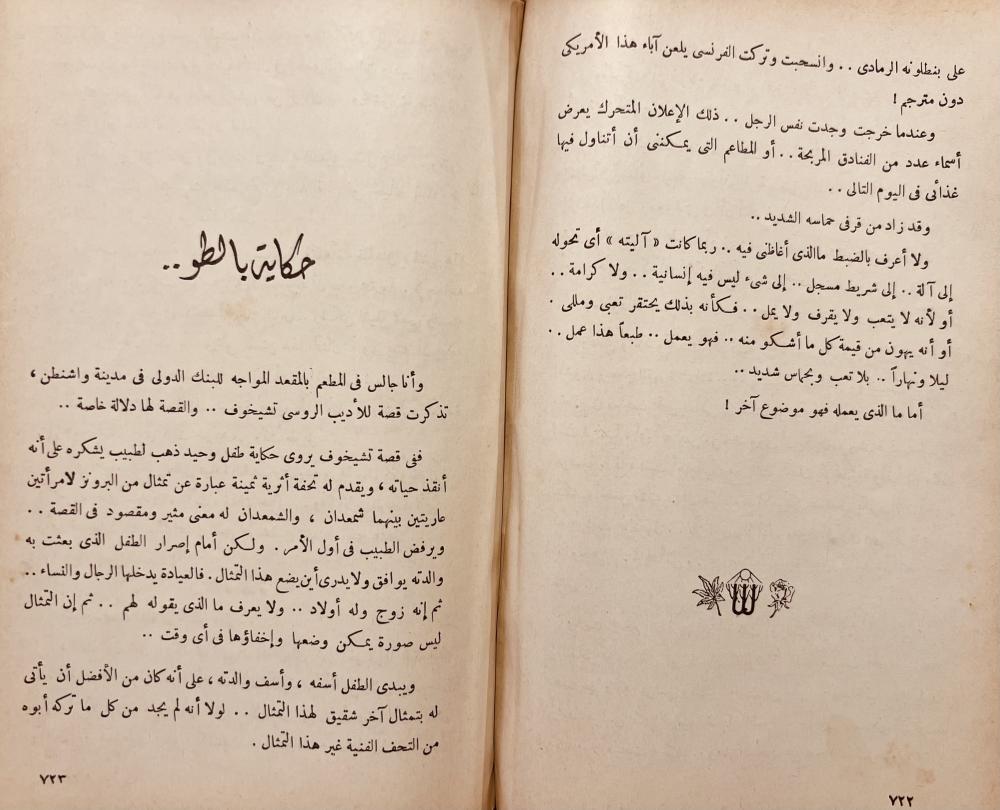 على بنطلونه الرمادى . . وانسحبت وتركت الفرنسى يلعن آباء هذا الأمريكى
دون مترجم !
وعندما خرجت وجدت نفس الرجل . . ذلك الإعلان المتحرك يعرض
أسماء عدد من الفنادق المريحة . . أو المطاعم التى يمكننى أن أتناول فيها
غذائى فى اليوم التالى . .
وقد زاد من قرفى حماسه الشديد ..
ولا أعرف بالضبط ماالذى أغاظنى فيه .. ربما كانت « آليته » أى تحوله
إلى آلة .. إلى شريط مسجل .. إلى شىء ليس فيه إنسانية . . ولا كرامة . .
أو لأنه لا يتعب ولا يقرف ولا يمل . . فكأنه بذلك يحتقر تعبى ومللى .
أو أنه يهون من قيمة كل ما أشكو منه .. فهو يعمل .. طبعاً هذا عمل . .
ليلا ونهاراً .. بلا تعب وبحماس شديد ..
أما ما الذى يعمله فهو موضوع آخر !
٧٢٢
حكاية بالطو ..
وأنا جالس فى المطعم بالمقعد المواجه للبنك الدولى فى مدينة واشنطن ،
تذكرت قصة للأديب الروسى تشيخوف .. والقصة لها دلالة خاصة ..
ففى قصة تشيخوف يروى حكاية طفل وحيد ذهب لطبيب يشكره على أنه
أنقذ حياته ، ويقدم له تحفة أثرية ثمينة عبارة عن تمثال من البرونز لامرأتين
عاريتين بينهما شمعدان ، والشمعدان له معنى مثير ومقصود فى القصة . .
ويرفض الطبيب فى أول الأمر . ولكن أمام إصرار الطفل الذى بعثت به
والدته يوافق ولايدرى أين يضع هذا التمثال . فالعيادة يدخلها الرجال والنساء ..
ثم إنه زوج وله أولاد .. ولا يعرف ما الذى يقوله لهم . . ثم إن التمثال
ليس صورة يمكن وضعها وإخفاؤها فى أى وقت ..
ويبدى الطفل أسفه ، وأسف والدته ، على أنه كان من الأفضل أن يأتى
له بتمثال آخر شقيق لهذا التمثال . . لولا أنه لم يجد من كل ما تركه أبوه
من التحف الفنية غير هذا التمثال .
٧٢٣